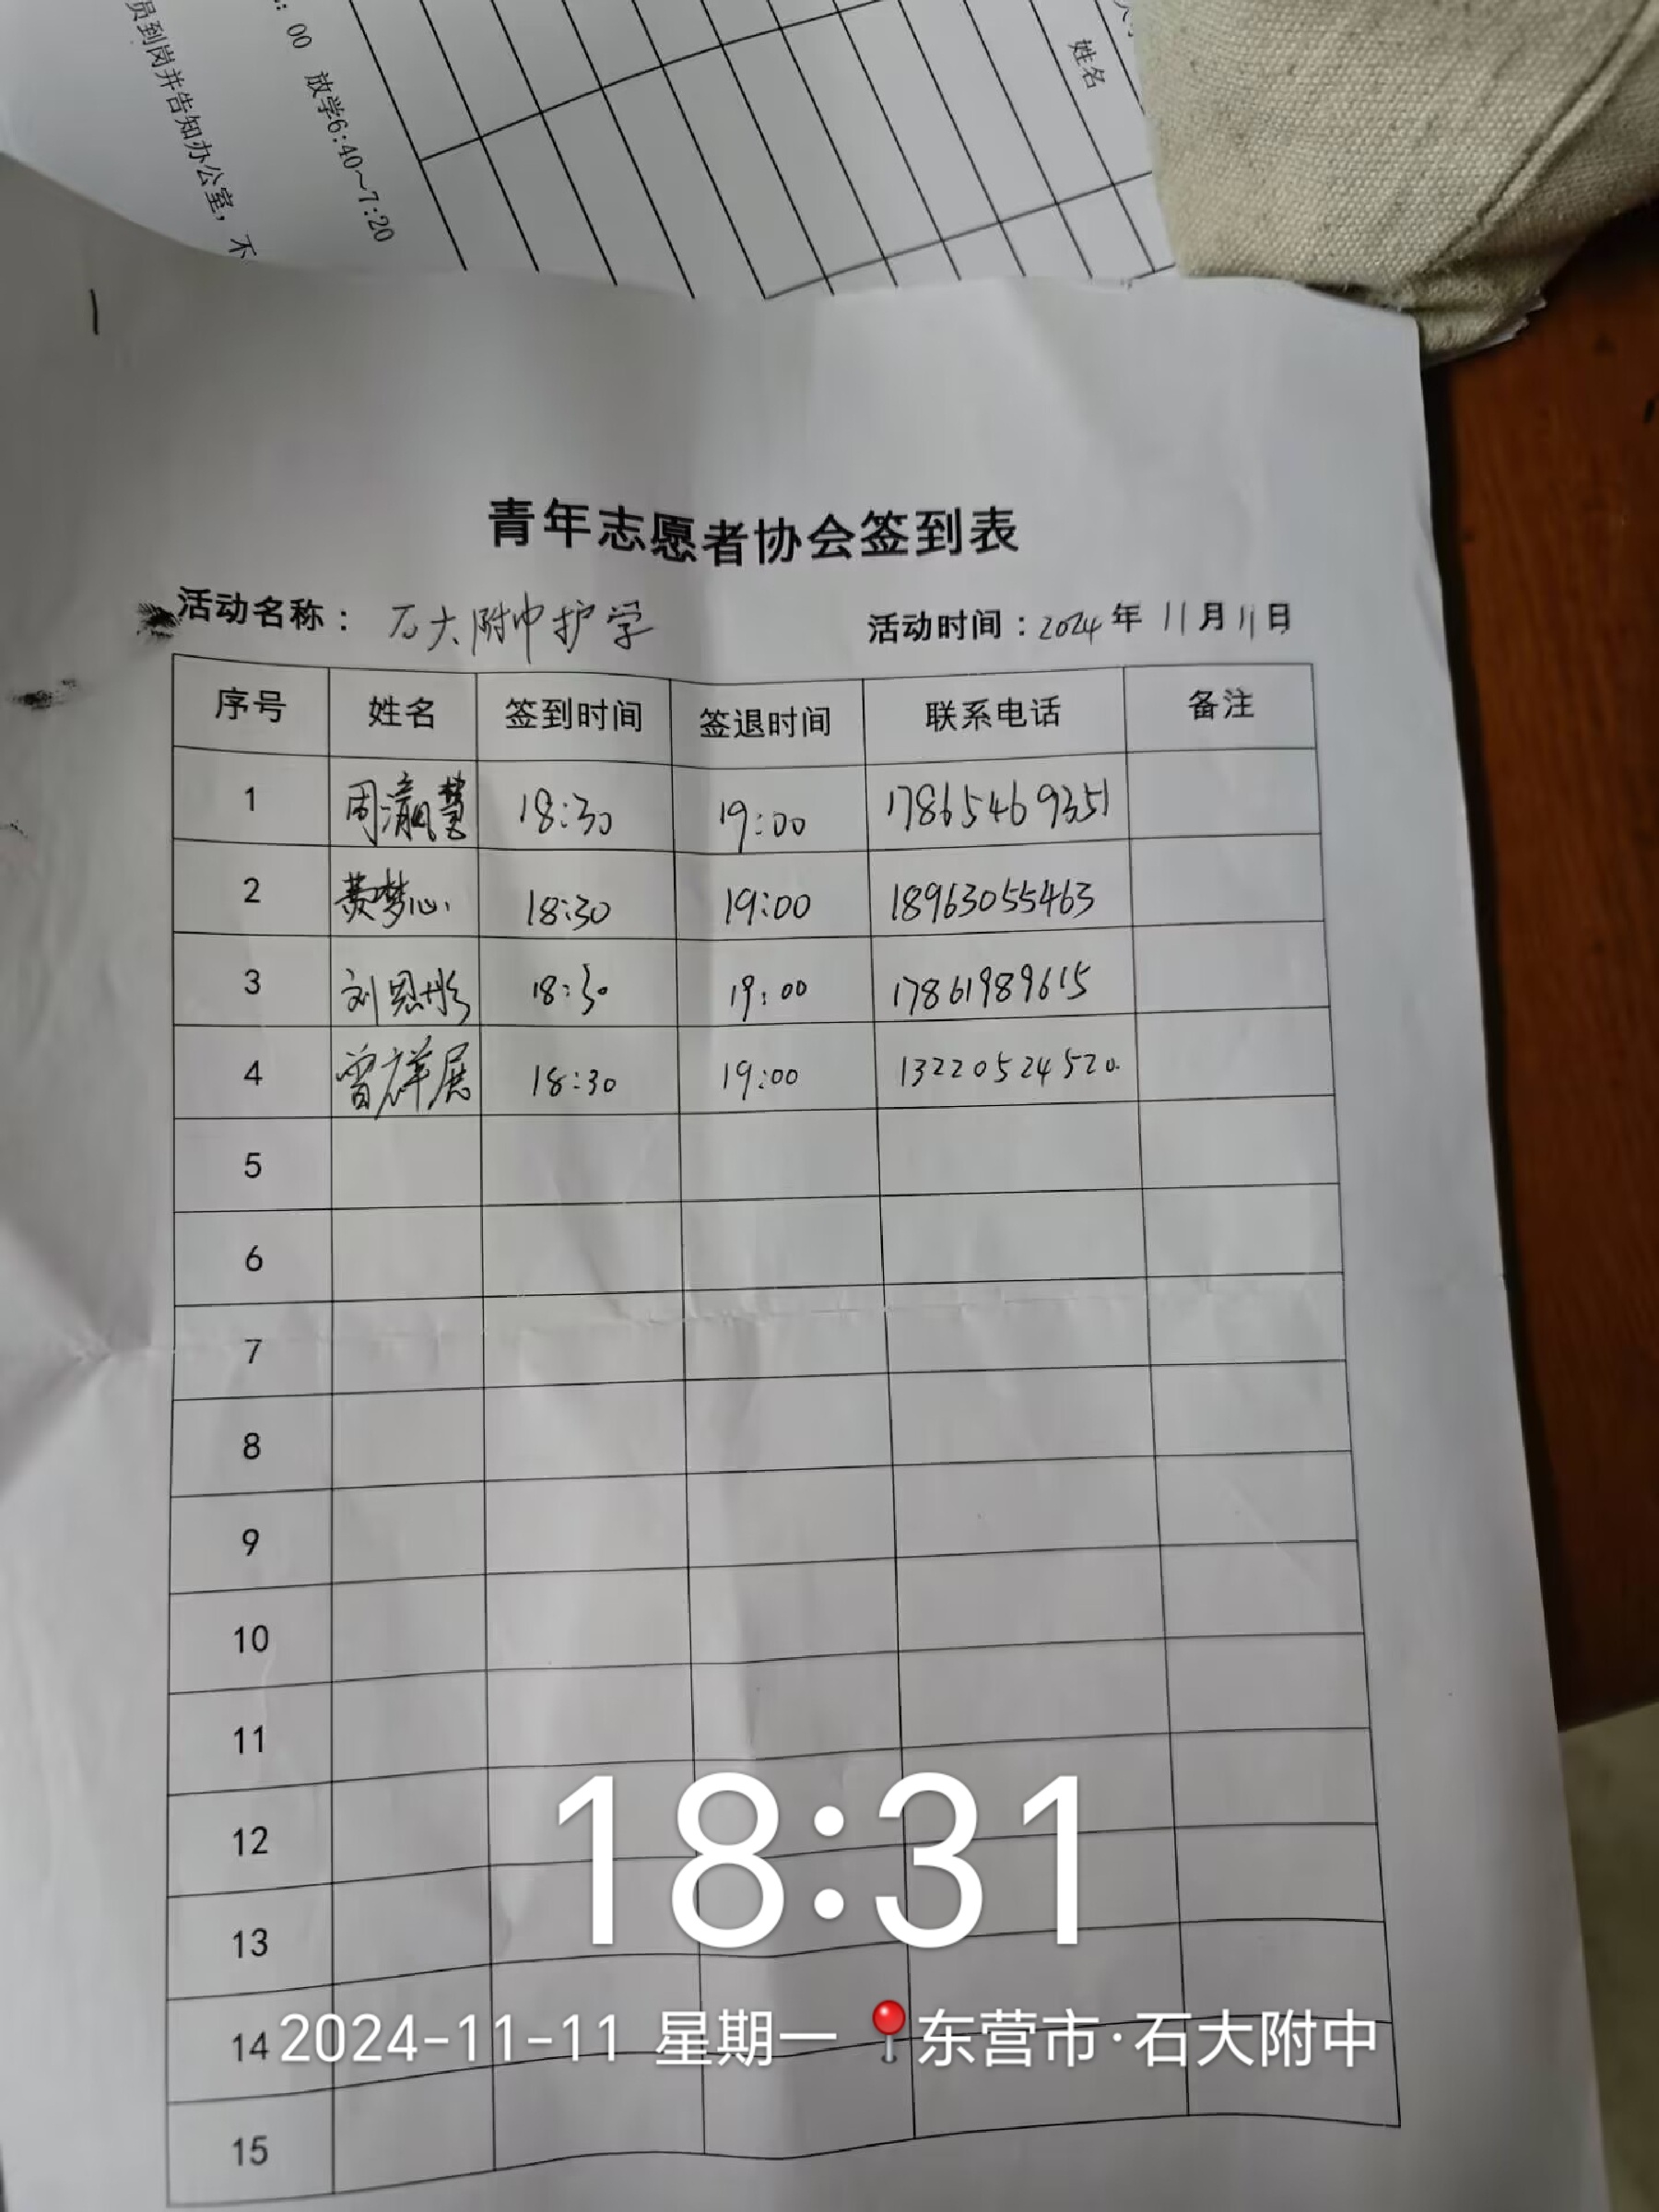 员到岗并告知办公室，不
：00 放学6:40～7:20
姓名
青年志愿者协会签到表
活动名称： 石大附中护学 活动时间：2024年 11月11日
序号 姓名 签到时间 签退时间 联系电话 备注
1 周 18:30 19:00 17865469351
2 黄梦心 18:30 19:00 18963055463
3 刘恩彤 18:30 19:00 17861989615
4 曾祥展 18:30 19:00 13220524520
5
6
7
8
9
10
11
12
13
14
15
18:31
2024-11-11 星期一 东营市·石大附中